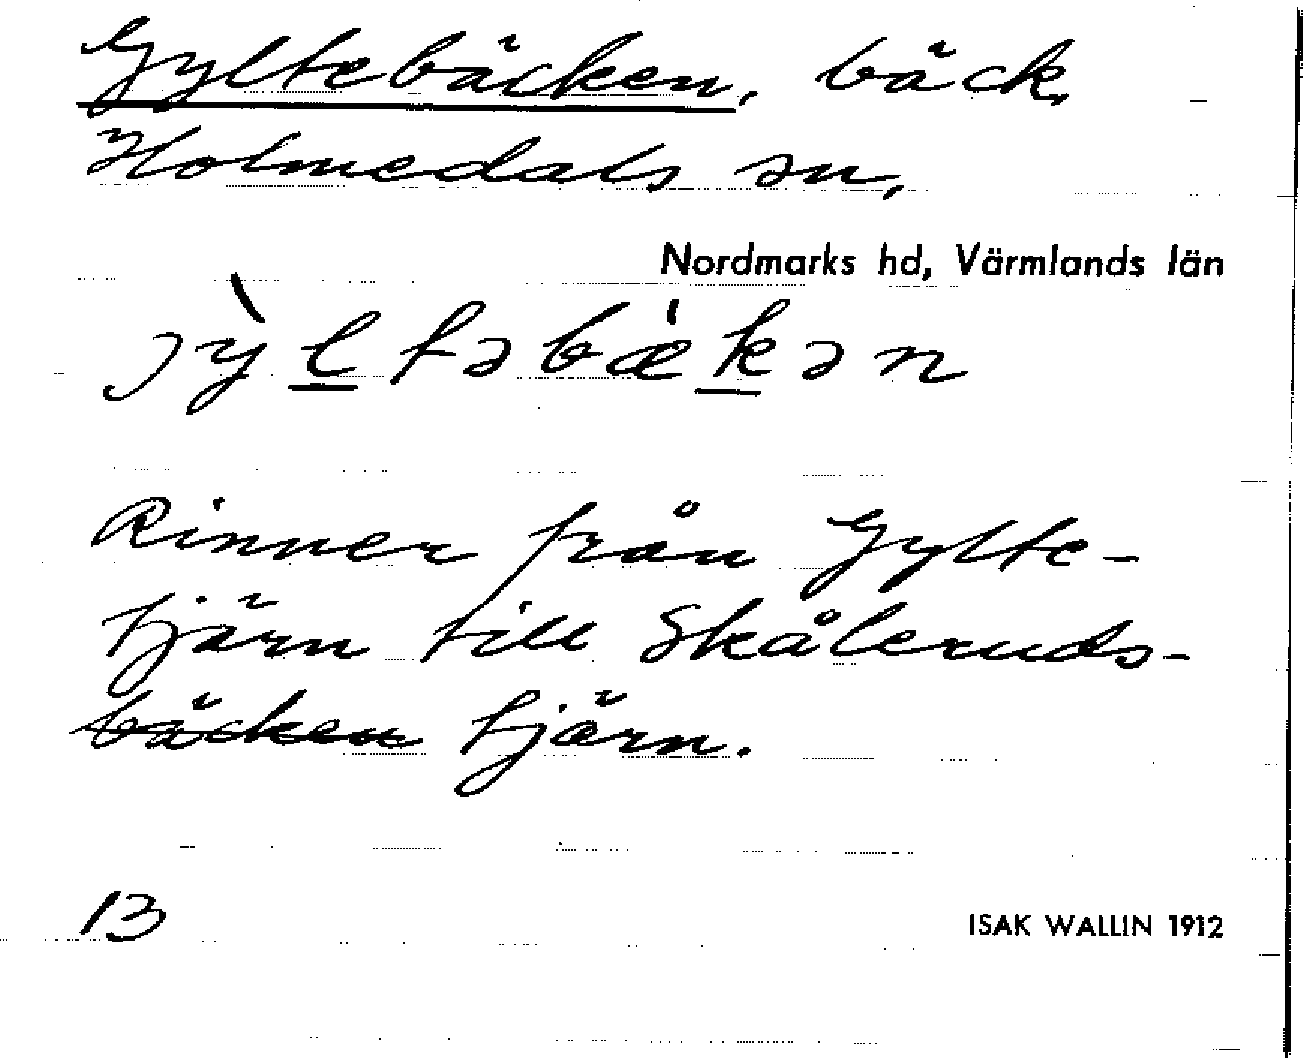 Gyltebäcken, bäck,
Holmedals sn,
Nordmarks hd, Värmlands län
jỳltəbæ̍kən
Rinner från Gylte-
tjärn till Skåleruds-
bäcken tjärn.
13
ISAK WALLIN 1912